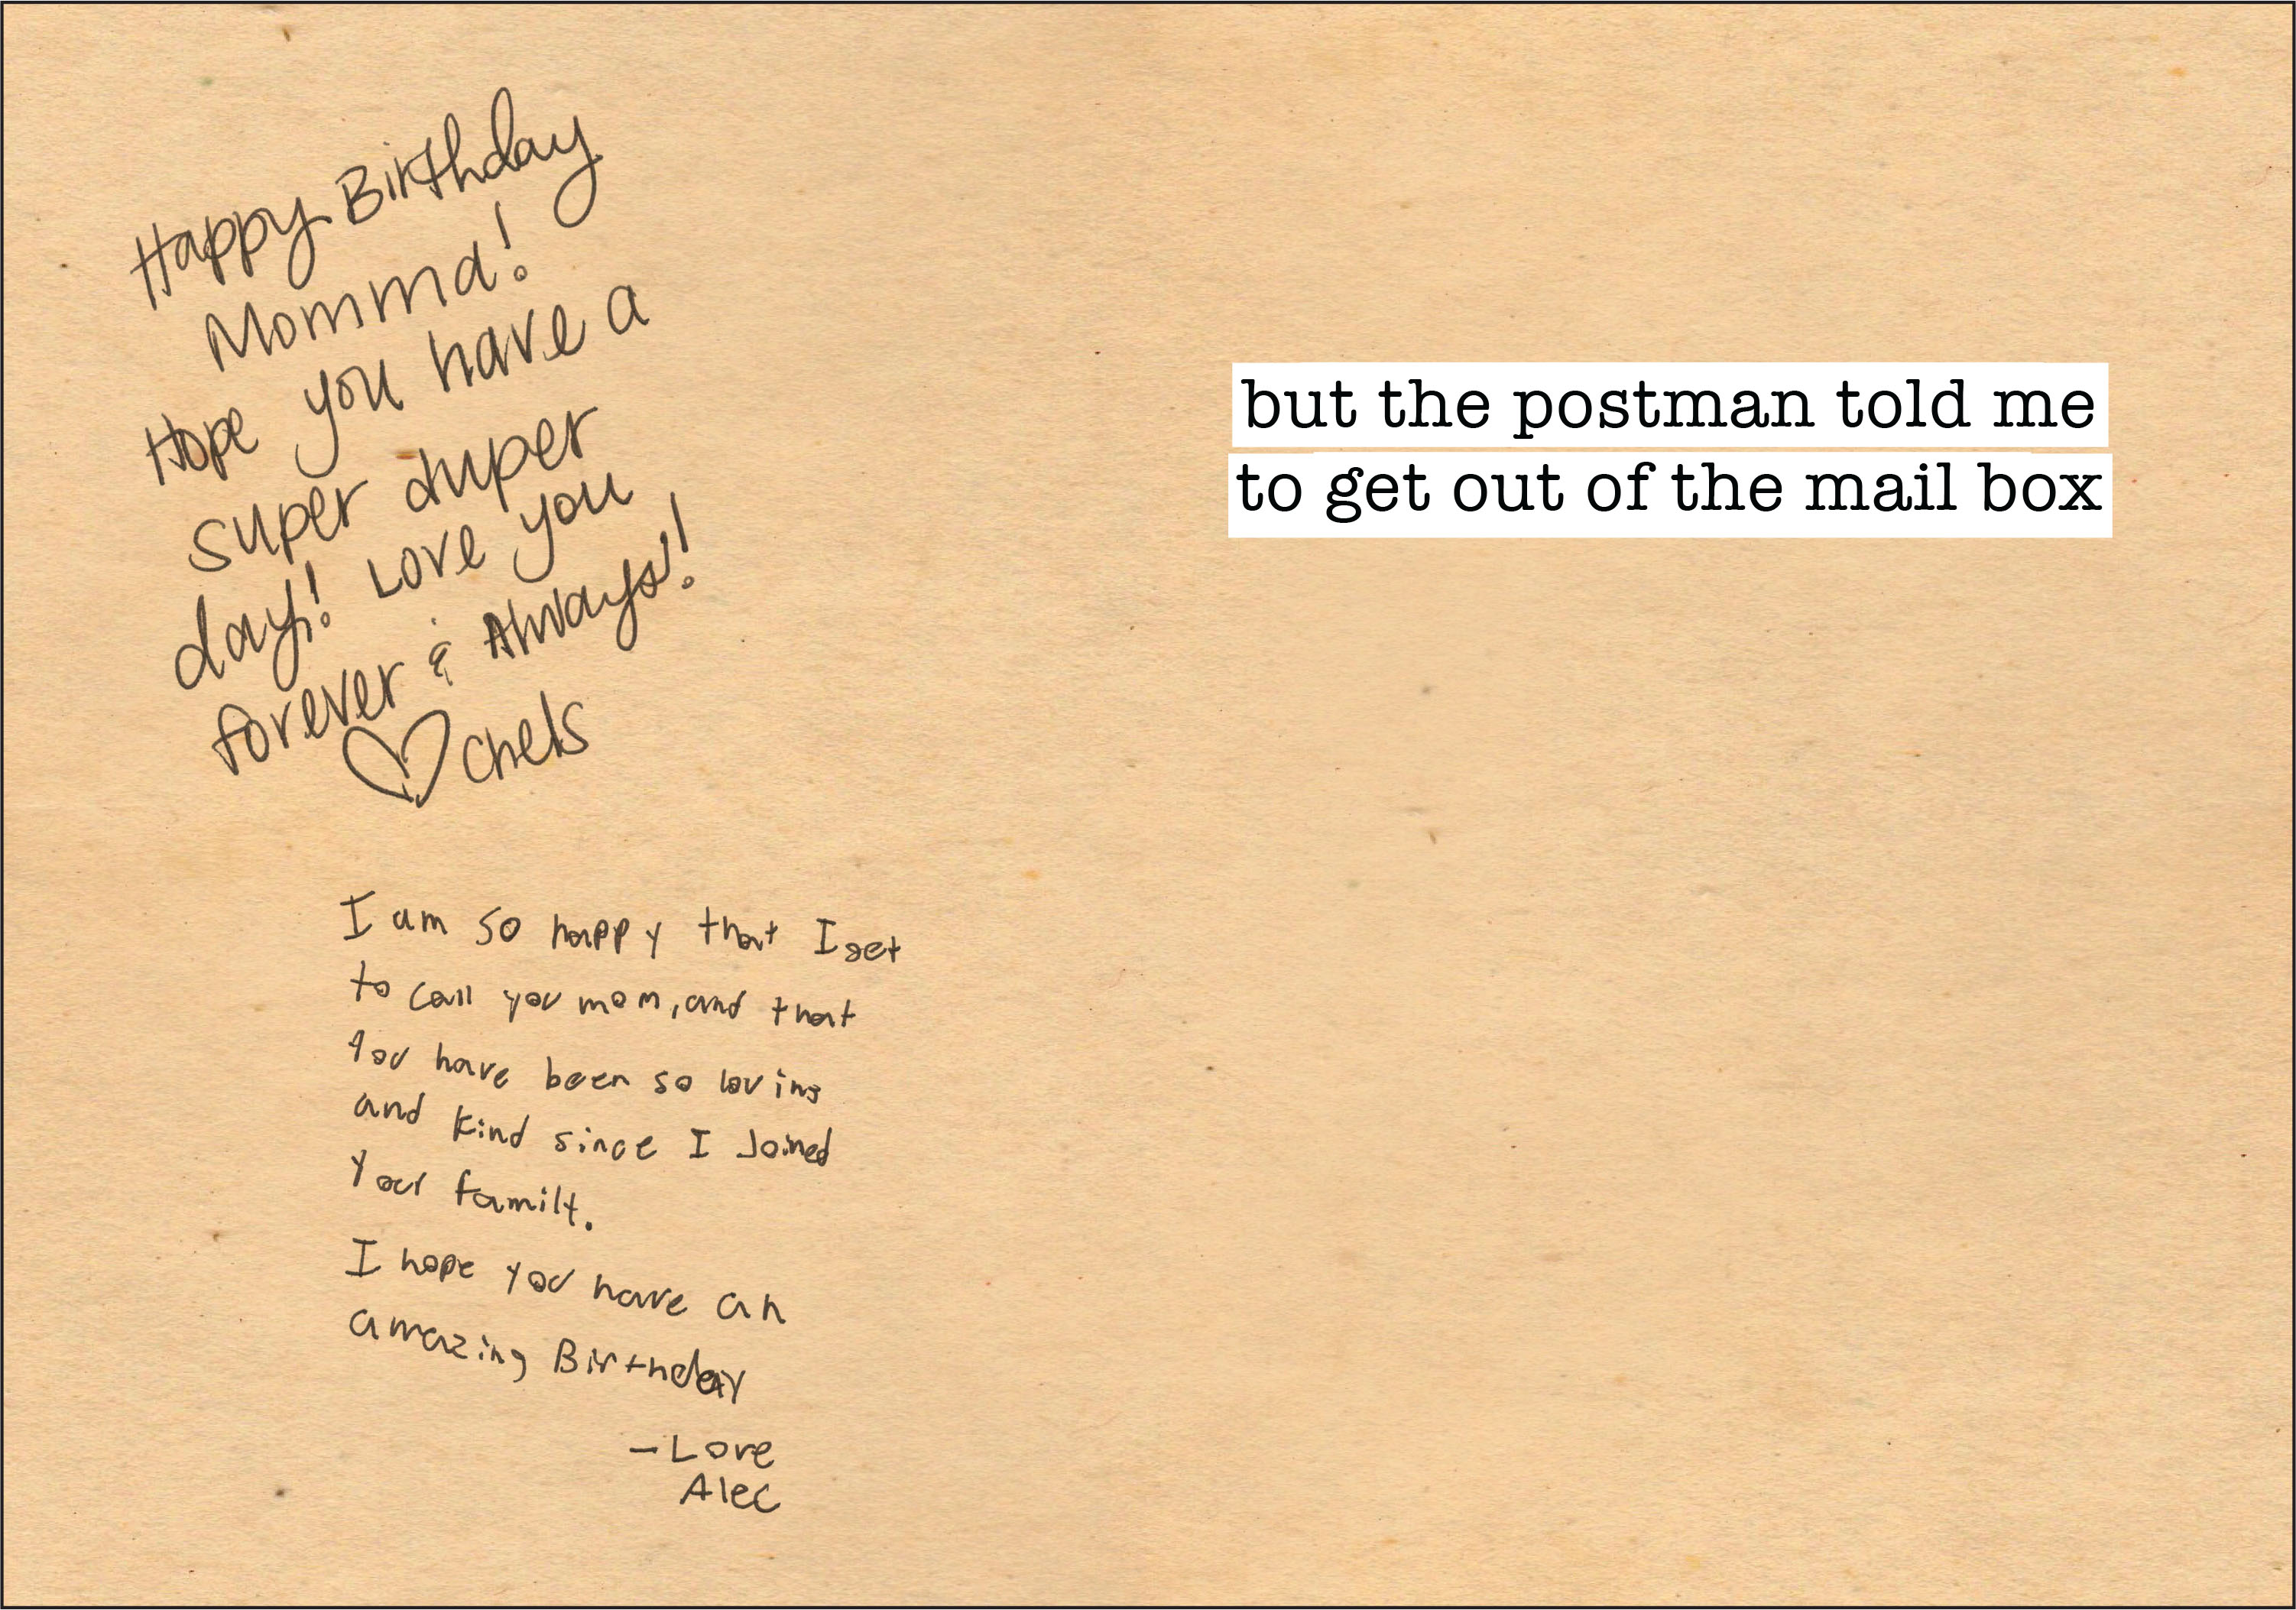 Happy Birthday
Momma!
Hope you have a
super duper
day! Love you
forever & Always!
♡ Chels
I am so happy that I get
to call you mom, and that
You have been so loving
and kind since I Joined
Your familt.
I hope you have an
amazing Birthday
- Love
Alec
but the postman told me
to get out of the mail box